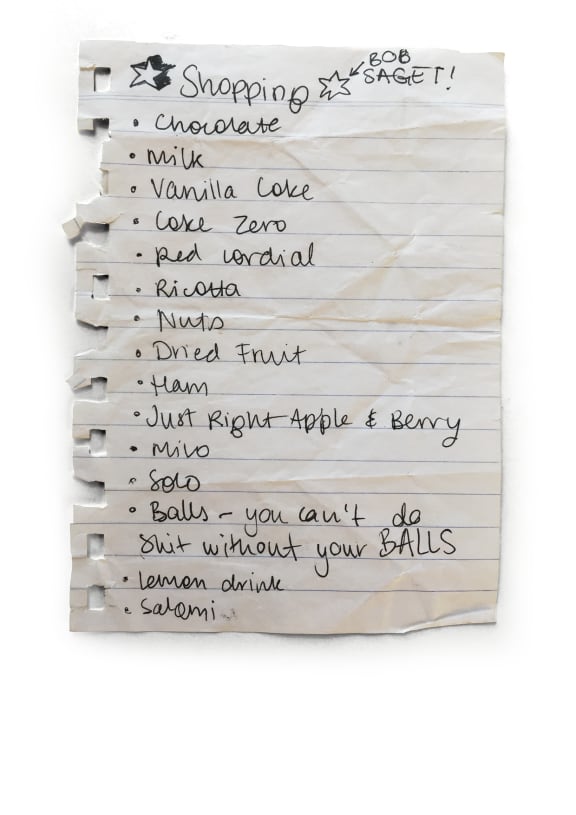 Shopping
BOB
SAGET!
• Chocolate
• Milk
• Vanilla Coke
• Coke Zero
• Red cordial
• Ricotta
• Nuts
• Dried Fruit
• Ham
• Just Right Apple & Berry
• Milo
• Solo
• Balls – you can't do
shit without your BALLS
• lemon drink
• salami